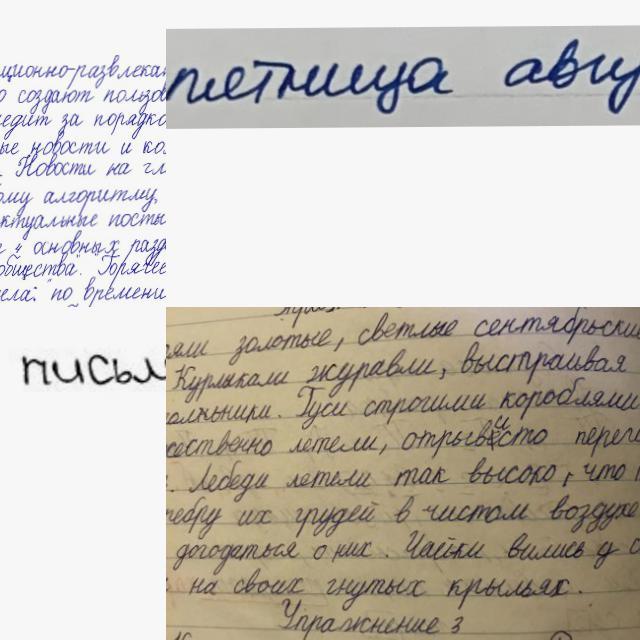 ционно-развлека
о создают пользо
едит за порядко
ые новости и ко
. Новости на гл
ому алгоритму,
ктуальные посты
4 основных разд
общества". "Горячее
ела: "по времени
пятница авгу
письм
яли золотые, светлые сентябрьские
Курлыкали журавли, выстраивая
ольники. Гуси строгими кораблями
жественно летели, отрывисто перего
. Лебеди летели так высоко, что
тебру их грудей в чистом воздухе
догодаться о них. Чайки вились у
на своих гнутых крыльях.
Упражнение 3